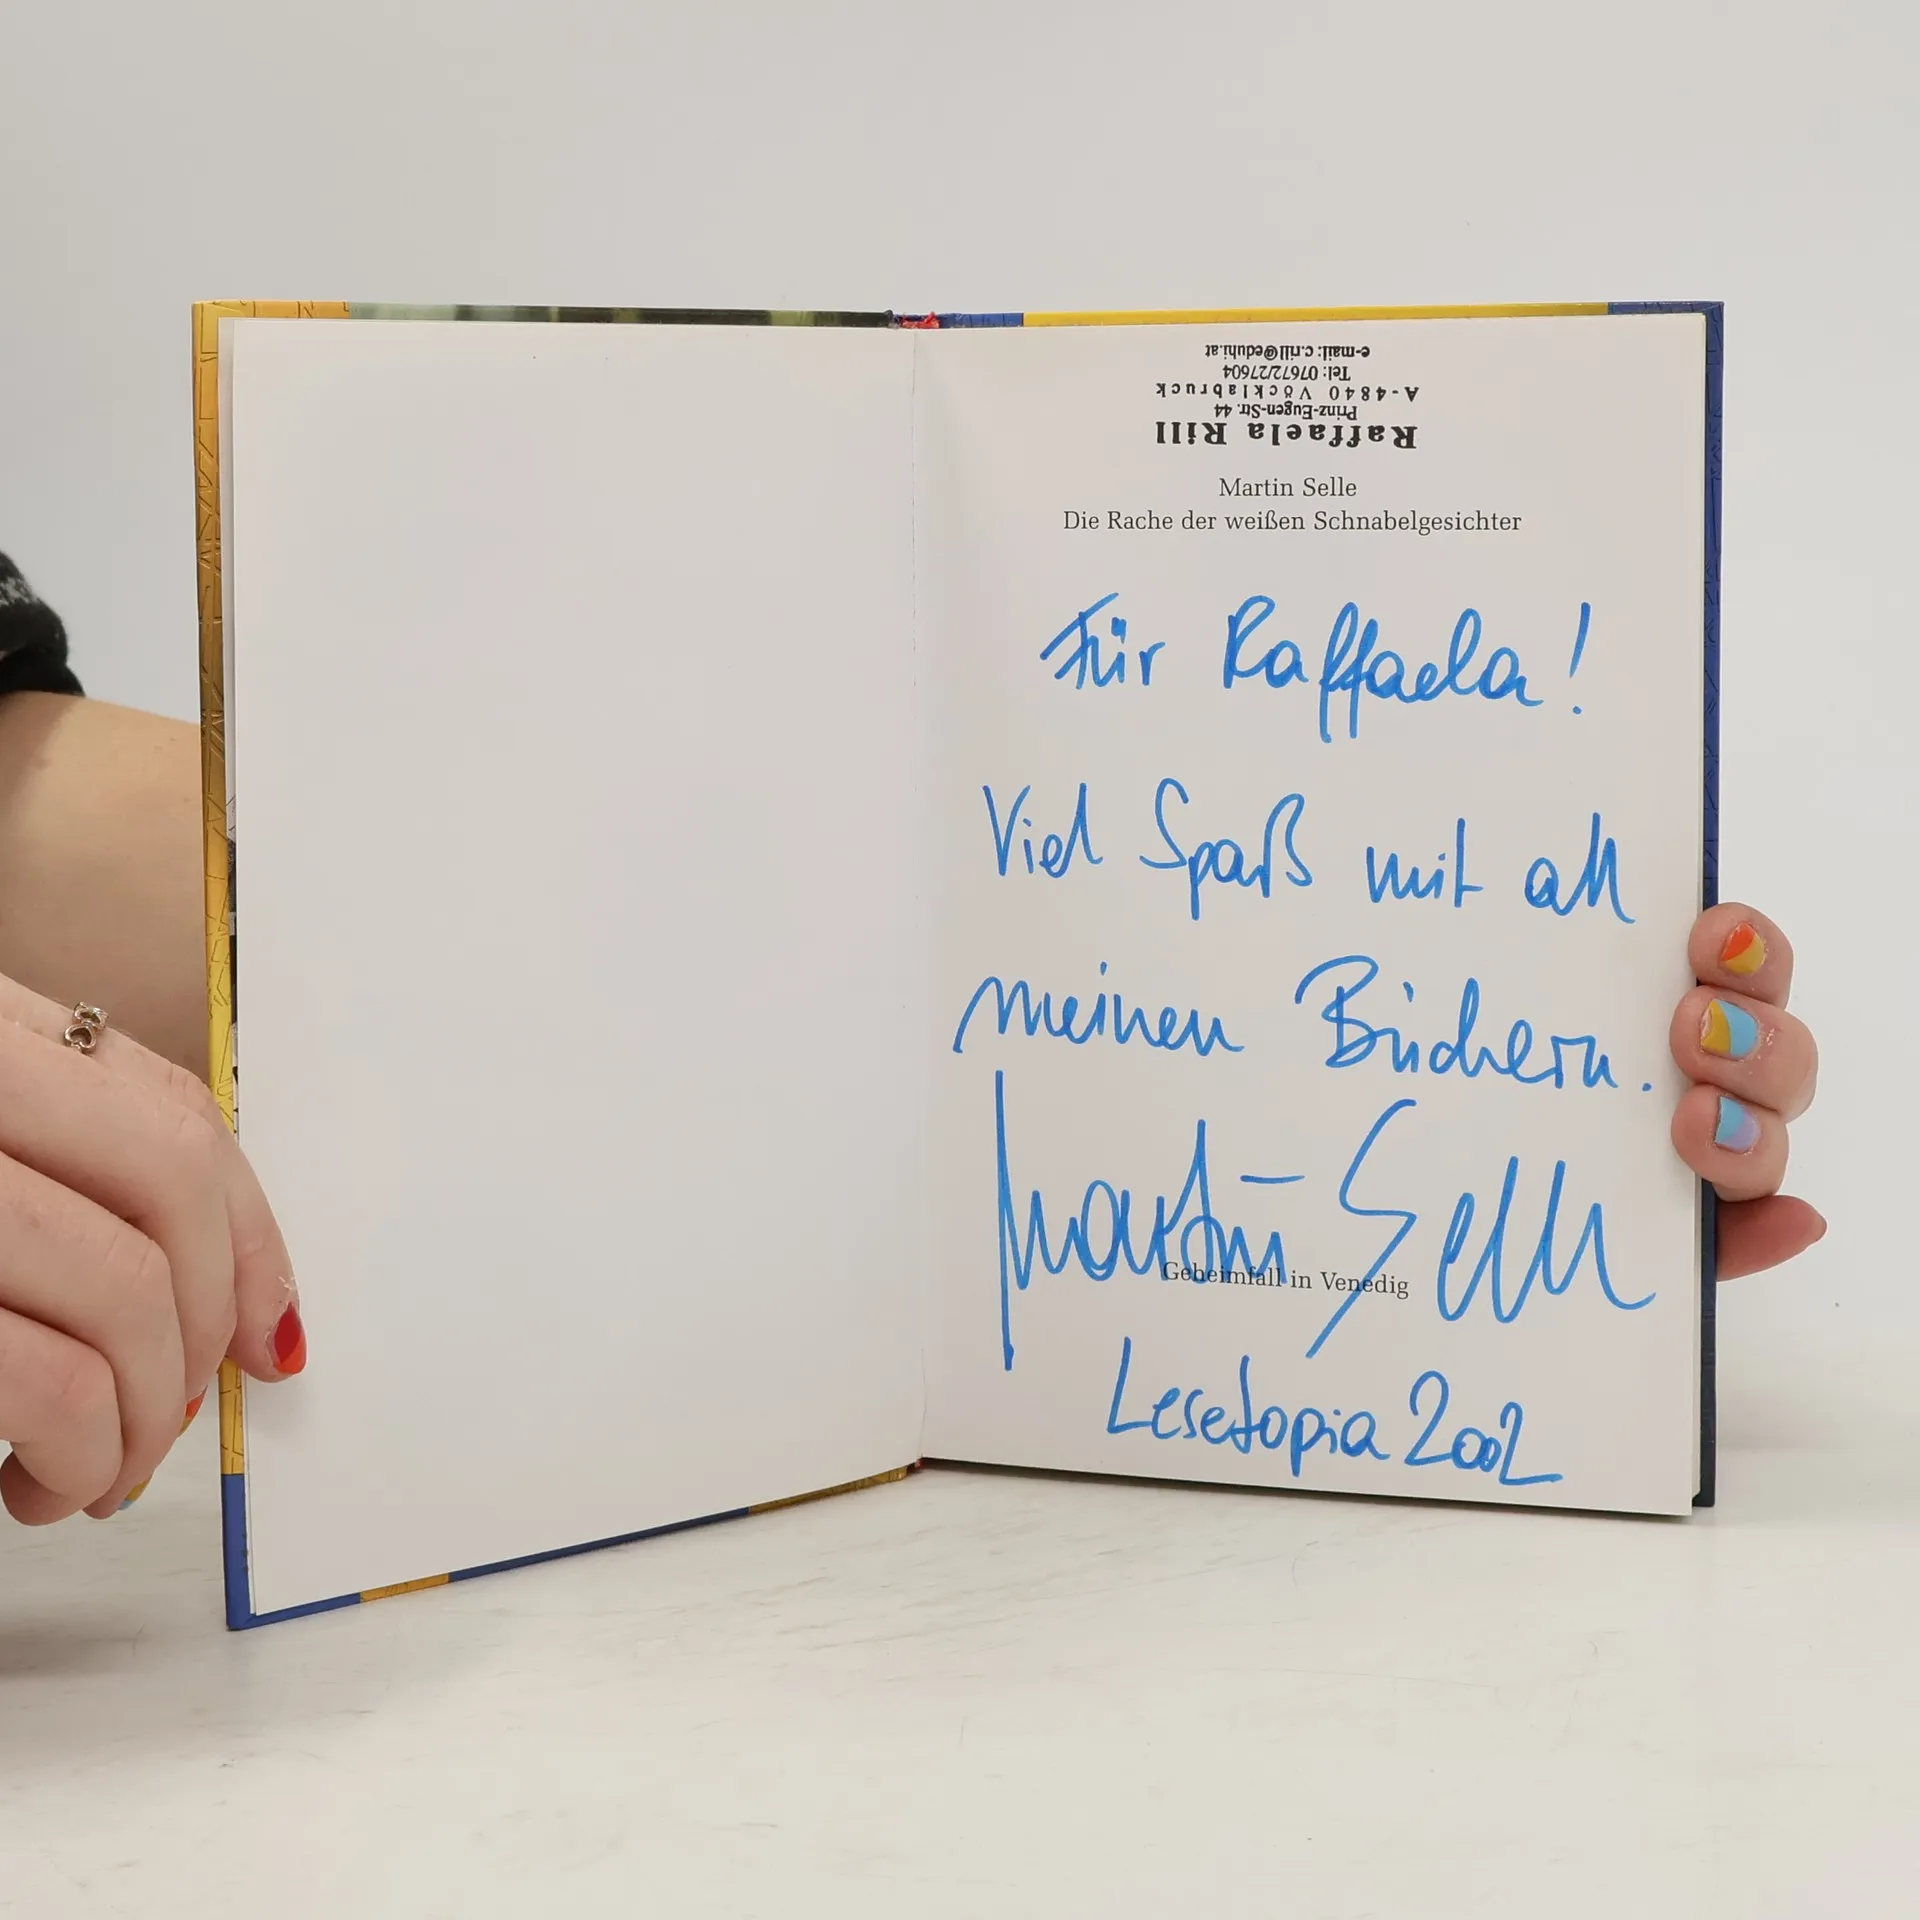 Raffaela Rill
Prinz-Eugen-Str. 44
A-4840 Vöcklabruck
Tel: 07672/27604
e-mail: c.rill@eduhi.at
Martin Selle
Die Rache der weißen Schnabelgesichter
Für Raffaela!
Viel Spaß mit all
meinen Büchern.
Martin Selle
Geheimfall in Venedig
Lesetopia 2002